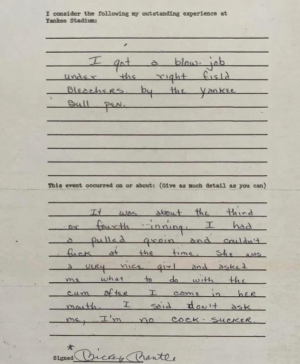 I consider the following my outstanding experience at
Yankee Stadium:
I got a blow-job
under the right field
Bleachers by the Yankee
Bull pen.
This event occurred on or about: (Give as much detail as you can)
It was about the third
or fourth inning. I had
a pulled groin and couldn't
fuck at the time. She was
a very nice girl and asked
me what to do with the
cum after I come in her
mouth. I said don't ask
me, I'm no cock-sucker
Signed Mickey Mantle